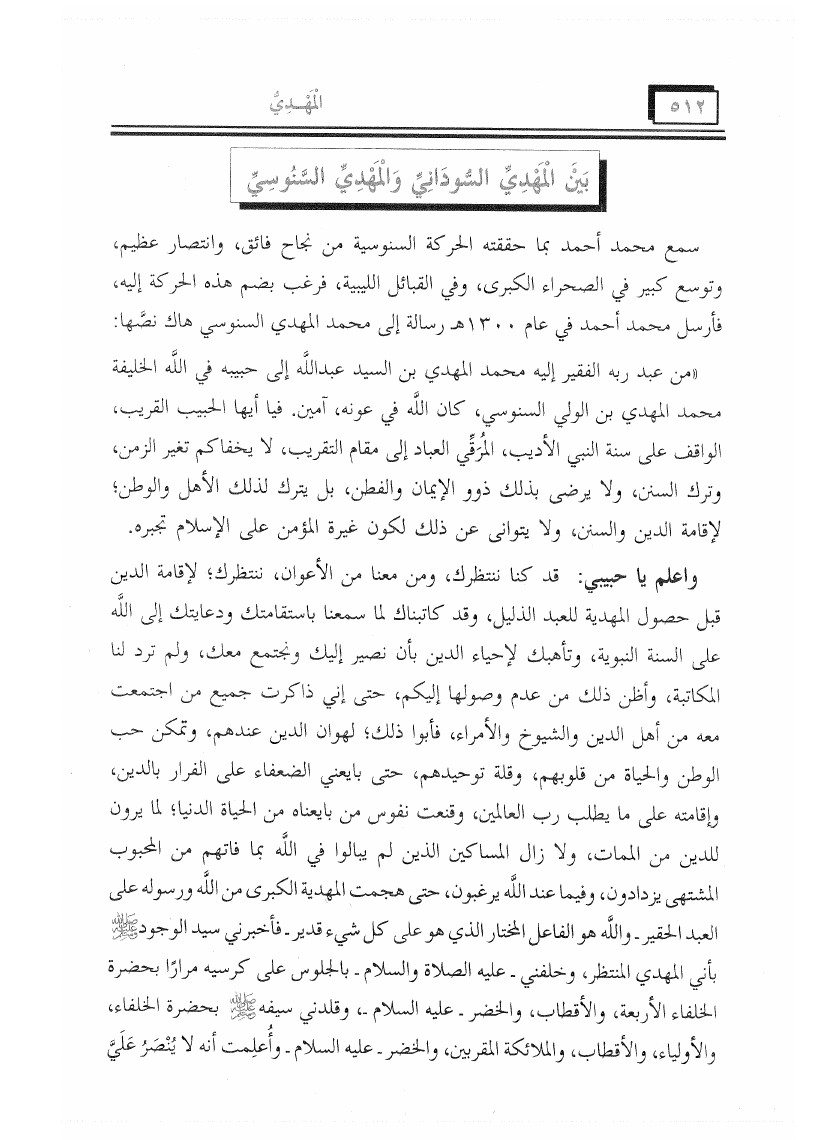 ٥١٢
الْمَهْـدِيُّ
بَيْنَ الْمَهْدِيِّ السُّودَانِيِّ وَالْمَهْدِيِّ السَّنُوسِيِّ
سمع محمد أحمد بما حققته الحركة السنوسية من نجاح فائق، وانتصار عظيم،
وتوسع كبير في الصحراء الكبرى، وفي القبائل الليبية، فرغب بضم هذه الحركة إليه،
فأرسل محمد أحمد في عام ١٣٠٠هـ رسالة إلى محمد المهدي السنوسي هاك نصَّها:
«من عبد ربه الفقير إليه محمد المهدي بن السيد عبدالله إلى حبيبه في اللَّه الخليفة
محمد المهدي بن الولي السنوسي، كان اللَّه في عونه، آمين. فيا أيها الحبيب القريب،
الواقف على سنة النبي الأديب، المُرَقِّي العباد إلى مقام التقريب، لا يخفاكم تغير الزمن،
وترك السنن، ولا يرضى بذلك ذوو الإيمان والفطن، بل يترك لذلك الأهل والوطن؛
لإقامة الدين والسنن، ولا يتوانى عن ذلك لكون غيرة المؤمن على الإسلام تجبره.
واعلم يا حبيبي: قد كنا ننتظرك، ومن معنا من الأعوان، ننتظرك؛ لإقامة الدين
قبل حصول المهدية للعبد الذليل، وقد كاتبناك لما سمعنا باستقامتك ودعايتك إلى اللَّه
على السنة النبوية، وتأهبك لإحياء الدين بأن نصير إليك ونجتمع معك، ولم ترد لنا
المكاتبة، وأظن ذلك من عدم وصولها إليكم، حتى إني ذاكرت جميع من اجتمعت
معه من أهل الدين والشيوخ والأمراء، فأبوا ذلك؛ لهوان الدين عندهم، وتمكن حب
الوطن والحياة من قلوبهم، وقلة توحيدهم، حتى بايعني الضعفاء على الفرار بالدين،
وإقامته على ما يطلب رب العالمين، وقنعت نفوس من بايعناه من الحياة الدنيا؛ لما يرون
للدين من الممات، ولا زال المساكين الذين لم يبالوا في اللَّه بما فاتهم من المحبوب
المشتهى يزدادون، وفيما عند اللَّه يرغبون، حتى هجمت المهدية الكبرى من اللَّه ورسوله على
العبد الحقير ـ واللَّه هو الفاعل المختار الذي هو على كل شيء قدير ـ فأخبرني سيد الوجود ﷺ
بأني المهدي المنتظر، وخلفني ـ عليه الصلاة والسلام ـ بالجلوس على كرسيه مرارًا بحضرة
الخلفاء الأربعة، والأقطاب، والخضر ـ عليه السلام ـ، وقلدني سيفه ﷺ بحضرة الخلفاء،
والأولياء، والأقطاب، والملائكة المقربين، والخضر ـ عليه السلام ـ وأُعلِمت أنه لا يُنْصَرُ عَلَيَّ